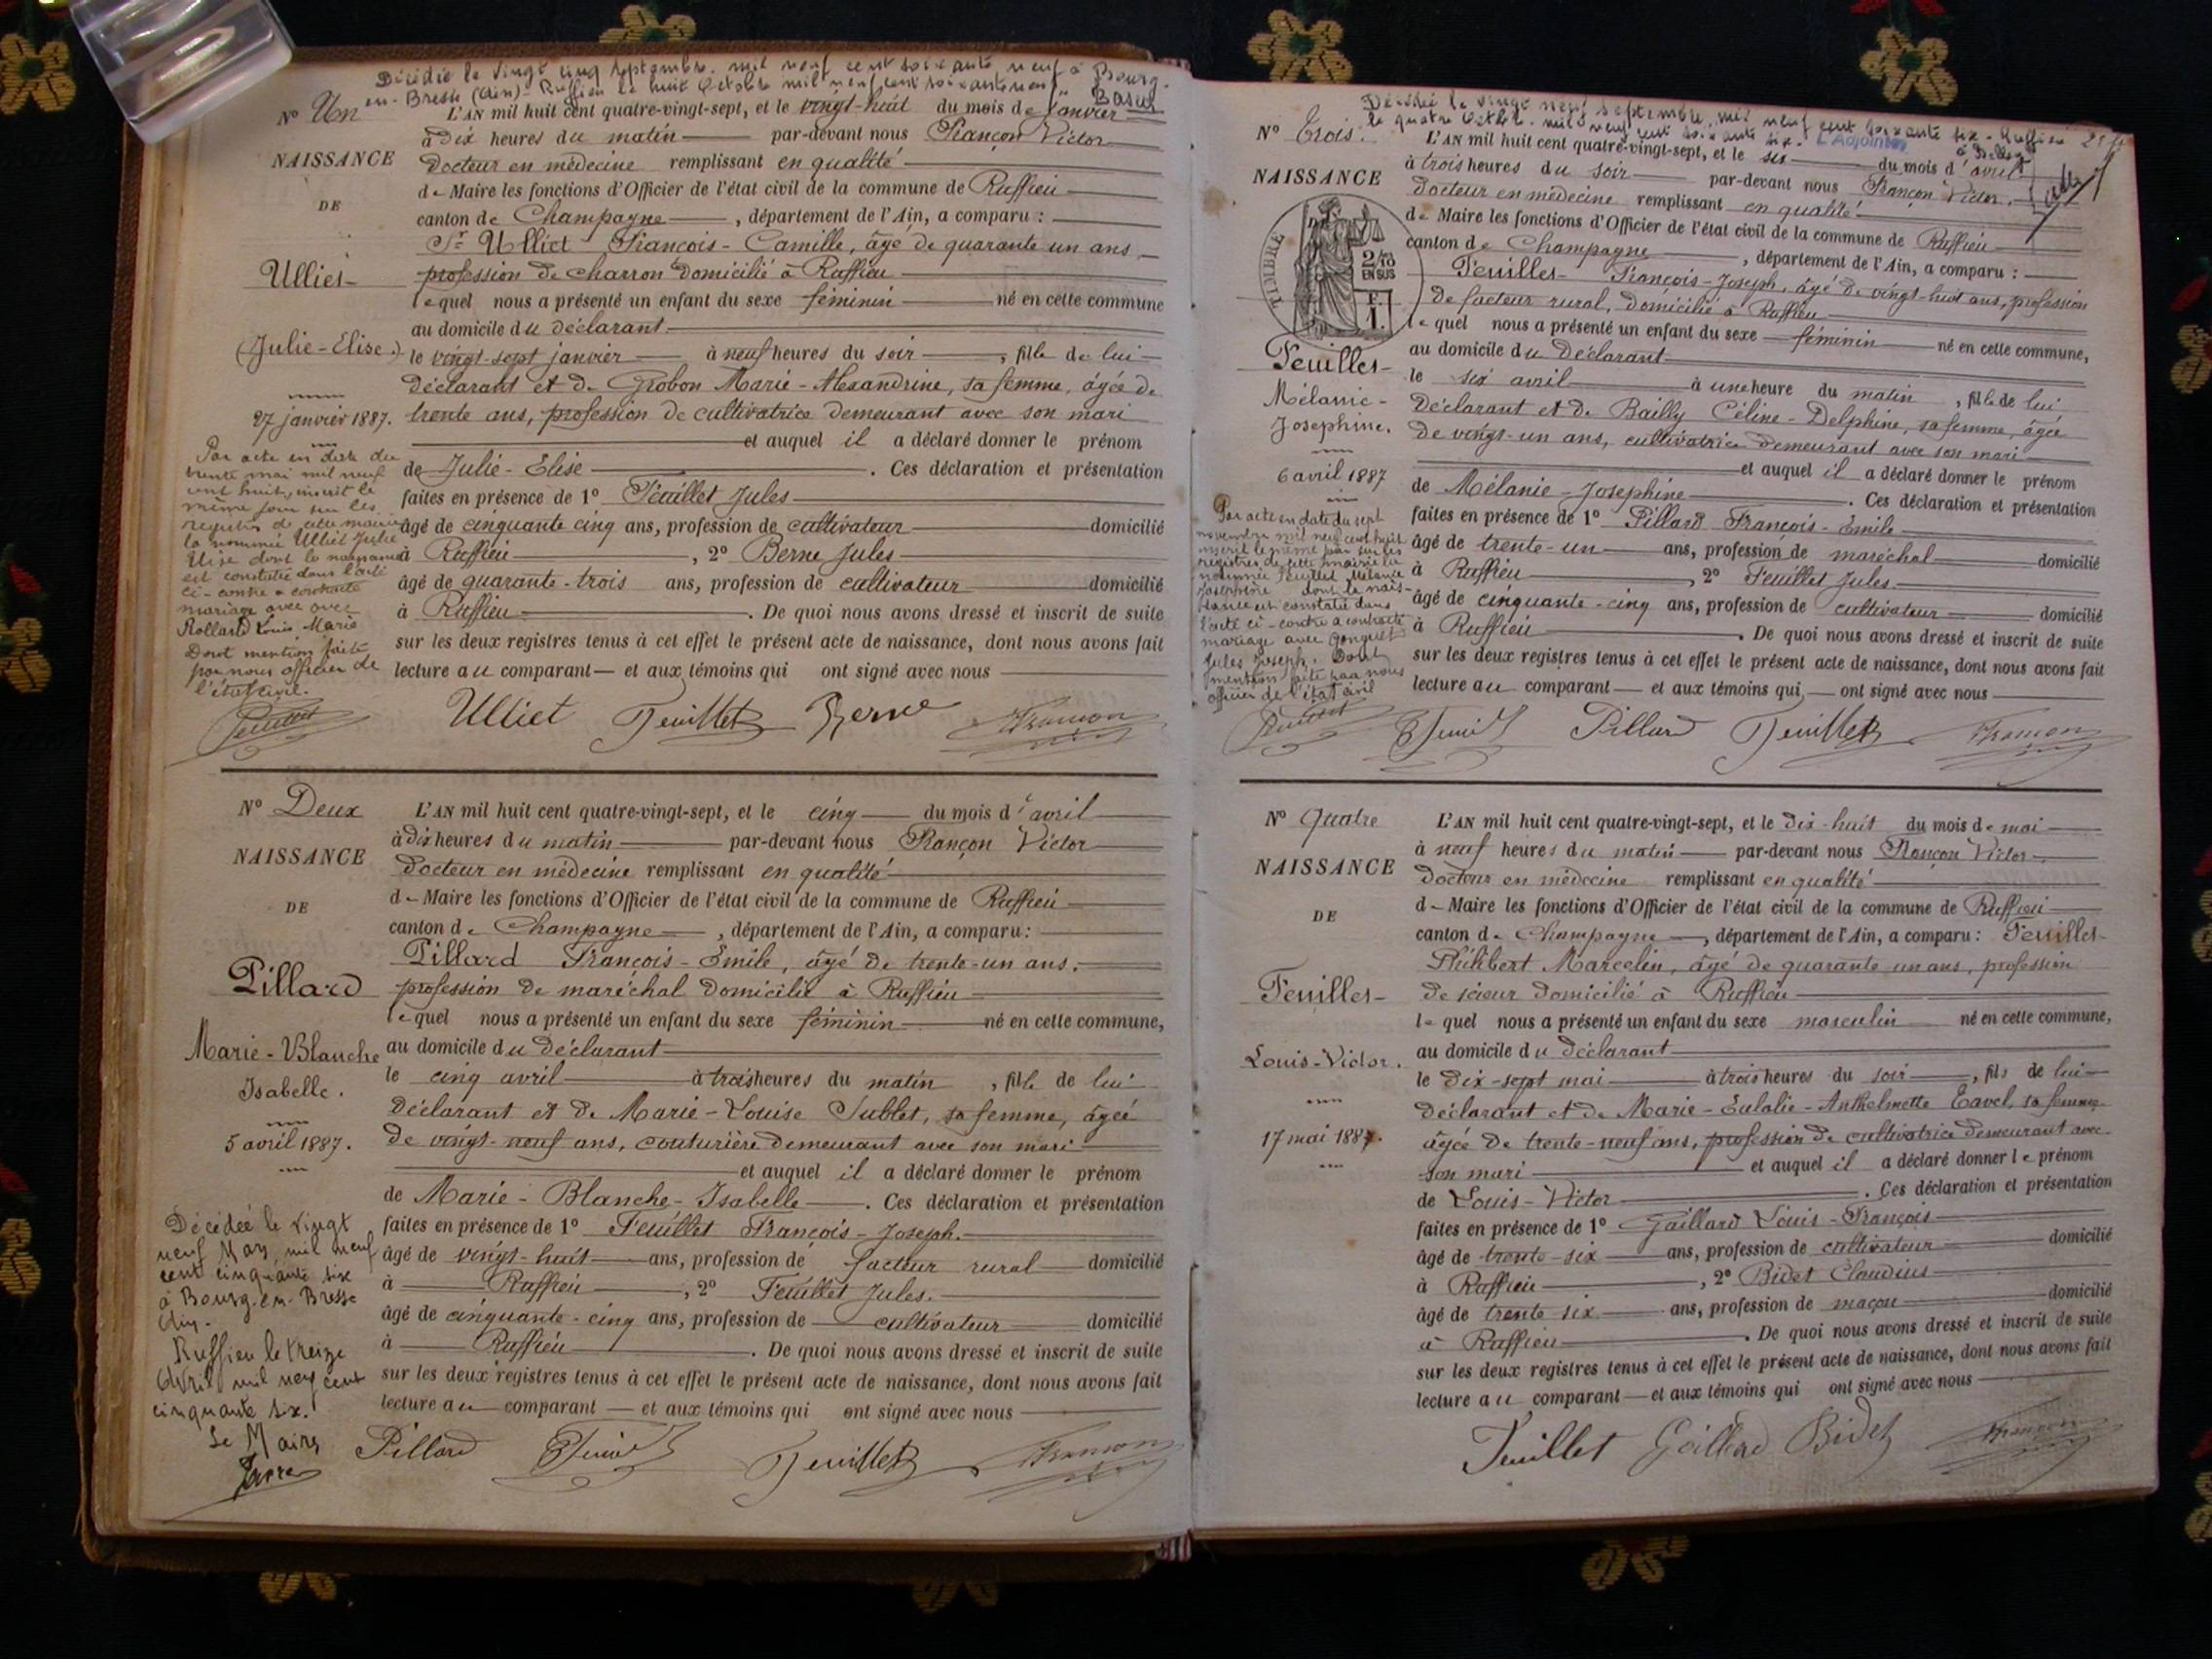 Décédée le vingt cinq septembre mil neuf cent soixante neuf à Bourg-
en-Bresse (Ain) - Ruffieu le huit Octobre mil neuf cent soixante neuf
N° Un
NAISSANCE
DE
Ulliet
(Julie-Elise.)
27 janvier 1887.
Par acte en date du
trente mai mil neuf
cent huit, inscrit le
même jour sur les
registres de cette mairie
la nommée Ulliet Julie
Elise dont la naissance
est constatée dans l'acte
ci-contre a contracté
mariage avec avec
Rolland Louis Marie
Dont mention faite
par nous officier de
l'état civil.
Feuillet
L'AN mil huit cent quatre-vingt-sept, et le vingt-huit du mois de janvier
à dix heures du matin par-devant nous Françon Victor
docteur en médecine remplissant en qualité
de Maire les fonctions d'Officier de l'état civil de la commune de Ruffieu
canton de Champagne, département de l'Ain, a comparu :
Sr Ulliet François-Camille, âgé de quarante un ans,
profession de charron domicilié à Ruffieu
lequel nous a présenté un enfant du sexe féminin né en cette commune
au domicile du déclarant
le vingt-sept janvier à neuf heures du soir, fille de lui
déclarant et de Grobon Marie-Alexandrine, sa femme, âgée de
trente ans, profession de cultivatrice demeurant avec son mari
et auquel il a déclaré donner le prénom
de Julie-Elise. Ces déclaration et présentation
faites en présence de 1° Feuillet Jules
âgé de cinquante cinq ans, profession de cultivateur domicilié
à Ruffieu, 2° Berne Jules
âgé de quarante-trois ans, profession de cultivateur domicilié
à Ruffieu. De quoi nous avons dressé et inscrit de suite
sur les deux registres tenus à cet effet le présent acte de naissance, dont nous avons fait
lecture au comparant et aux témoins qui ont signé avec nous
Ulliet Feuillet Berne Françon
N° Deux
NAISSANCE
DE
Pillard
Marie-Blanche
Isabelle.
5 avril 1887.
Décédée le vingt
neuf Mars mil neuf
cent cinquante six
à Bourg-en-Bresse
Ain.
Ruffieu le treize
Avril mil neuf cent
cinquante six.
Le Maire
L'AN mil huit cent quatre-vingt-sept, et le cinq du mois d'avril
à dix heures du matin par-devant nous Françon Victor
docteur en médecine remplissant en qualité
de Maire les fonctions d'Officier de l'état civil de la commune de Ruffieu
canton de Champagne, département de l'Ain, a comparu :
Pillard François-Emile, âgé de trente-un ans.
profession de maréchal domicilié à Ruffieu
lequel nous a présenté un enfant du sexe féminin né en cette commune,
au domicile du déclarant
le cinq avril à trois heures du matin, fille de lui
déclarant et de Marie-Louise Jublet, sa femme, âgée
de vingt-neuf ans, couturière demeurant avec son mari
et auquel il a déclaré donner le prénom
de Marie-Blanche-Isabelle. Ces déclaration et présentation
faites en présence de 1° Feuillet François-Joseph.
âgé de vingt-huit ans, profession de facteur rural domicilié
à Ruffieu, 2° Feuillet Jules.
âgé de cinquante-cinq ans, profession de cultivateur domicilié
à Ruffieu. De quoi nous avons dressé et inscrit de suite
sur les deux registres tenus à cet effet le présent acte de naissance, dont nous avons fait
lecture au comparant et aux témoins qui ont signé avec nous
Pillard Feuillet Françon
Décédée le vingt neuf septembre mil neuf cent soixante six - Ruffieu
le quatre Octobre mil neuf cent soixante six. L'Adjoint
à Belley
N° Trois.
NAISSANCE
TIMBRE
2/10
EN SUS
F.
1.
Feuillet
Mélanie-
Josephine.
6 avril 1887
Par acte en date du sept
novembre mil neuf cent huit
inscrit le même jour sur les
registres de cette mairie la
nommée Feuillet Mélanie
Joséphine dont la nais-
sance est constatée dans
l'acte ci-contre a contracté
mariage avec Gonguet
Jules Joseph. Dont
mention faite par nous
officier de l'état civil
Feuillet
L'AN mil huit cent quatre-vingt-sept, et le six du mois d'avril
à trois heures du soir par-devant nous Françon Victor.
docteur en médecine remplissant en qualité
de Maire les fonctions d'Officier de l'état civil de la commune de Ruffieu
canton de Champagne, département de l'Ain, a comparu :
Feuillet François-Joseph, âgé de vingt-huit ans, profession
de facteur rural, domicilié à Ruffieu
lequel nous a présenté un enfant du sexe féminin né en cette commune,
au domicile du déclarant
le six avril à une heure du matin, fille de lui
déclarant et de Bailly Céline-Delphine, sa femme, âgée
de vingt-un ans, cultivatrice demeurant avec son mari
et auquel il a déclaré donner le prénom
de Mélanie-Josephine. Ces déclaration et présentation
faites en présence de 1° Pillard François-Emile
âgé de trente-un ans, profession de maréchal domicilié
à Ruffieu, 2° Feuillet Jules
âgé de cinquante-cinq ans, profession de cultivateur domicilié
à Ruffieu. De quoi nous avons dressé et inscrit de suite
sur les deux registres tenus à cet effet le présent acte de naissance, dont nous avons fait
lecture au comparant et aux témoins qui ont signé avec nous
Pillard Feuillet Françon
N° Quatre
NAISSANCE
DE
Feuillet
Louis-Victor.
17 mai 1887.
L'AN mil huit cent quatre-vingt-sept, et le dix-huit du mois de mai
à neuf heures du matin par-devant nous Françon Victor
docteur en médecine remplissant en qualité
de Maire les fonctions d'Officier de l'état civil de la commune de Ruffieu
canton de Champagne, département de l'Ain, a comparu : Feuillet
Philibert Marcelin, âgé de quarante un ans, profession
de scieur domicilié à Ruffieu
lequel nous a présenté un enfant du sexe masculin né en cette commune,
au domicile du déclarant
le dix-sept mai à trois heures du soir, fils de lui
déclarant et de Marie-Eulalie-Anthelmette Tavel, sa femme
âgée de trente-neuf ans, profession de cultivatrice demeurant avec
son mari et auquel il a déclaré donner le prénom
de Louis-Victor. Ces déclaration et présentation
faites en présence de 1° Gaillard Louis-François
âgé de trente-six ans, profession de cultivateur domicilié
à Ruffieu, 2° Bidet Claudius
âgé de trente six ans, profession de maçon domicilié
à Ruffieu. De quoi nous avons dressé et inscrit de suite
sur les deux registres tenus à cet effet le présent acte de naissance, dont nous avons fait
lecture au comparant et aux témoins qui ont signé avec nous
Feuillet Gaillard Bidet Françon